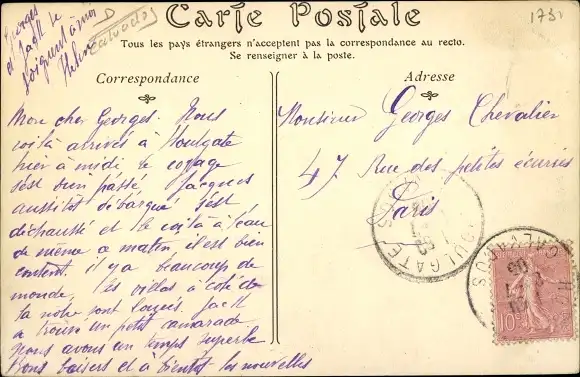 Carte Postale
Tous les pays étrangers n'acceptent pas la correspondance au recto.
Se renseigner à la poste.
Correspondance
Adresse
1731
Calvados
Georges
et Jack se
soignent à moi
Mon cher Georges. Nous
voilà arrivés à Houlgate
hier à midi, le voyage
s'est bien passé, Jacques
aussitôt débarqué s'est
déchaussé et le voilà à l'eau
de même ce matin, il est bien
content. il y a beaucoup de
monde, les villas à côté de
la nôtre sont louées. Jack
a trouvé un petit camarade
nous avons un temps superbe
Bons baisers et à bientôt les nouvelles
Monsieur Georges Chevalier
47 Rue des petites écuries
Paris
HOULGATE
CALVADOS
10